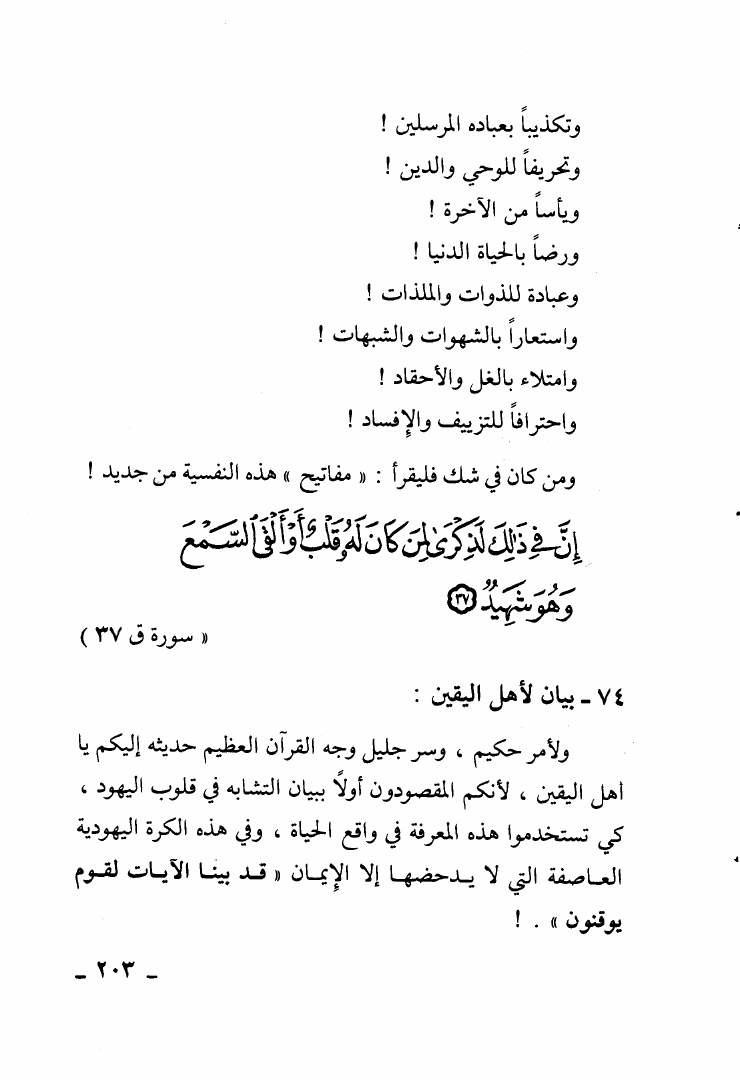 وتكذيباً بعباده المرسلين !
وتحريفاً للوحي والدين !
ويأساً من الآخرة !
ورضاً بالحياة الدنيا !
وعبادة للذوات والملذات !
واستعاراً بالشهوات والشبهات !
وامتلاء بالغل والأحقاد !
واحترافاً للتزييف والإفساد !
ومن كان في شك فليقرأ : « مفاتيح » هذه النفسية من جديد !
إِنَّ فِي ذَٰلِكَ لَذِكْرَىٰ لِمَن كَانَ لَهُۥ قَلْبٌ أَوْ أَلْقَى ٱلسَّمْعَ
وَهُوَ شَهِيدٌ ٣٧
« سورة ق ٣٧ )
٧٤ ـ بيان لأهل اليقين :
ولأمر حكيم ، وسر جليل وجه القرآن العظيم حديثه إليكم يا
أهل اليقين ، لأنكم المقصودون أولاً ببيان التشابه في قلوب اليهود ،
كي تستخدموا هذه المعرفة في واقع الحياة ، وفي هذه الكرة اليهودية
العـاصفة التي لا يـدحضهـا إلا الإيمـان « قـد بينـا الآيـات لقـوم
يوقنون » . !
ـ ٢٠٣ ـ